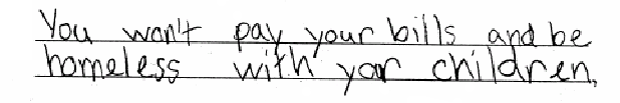 You won't pay your bills and be
homeless with yor children.